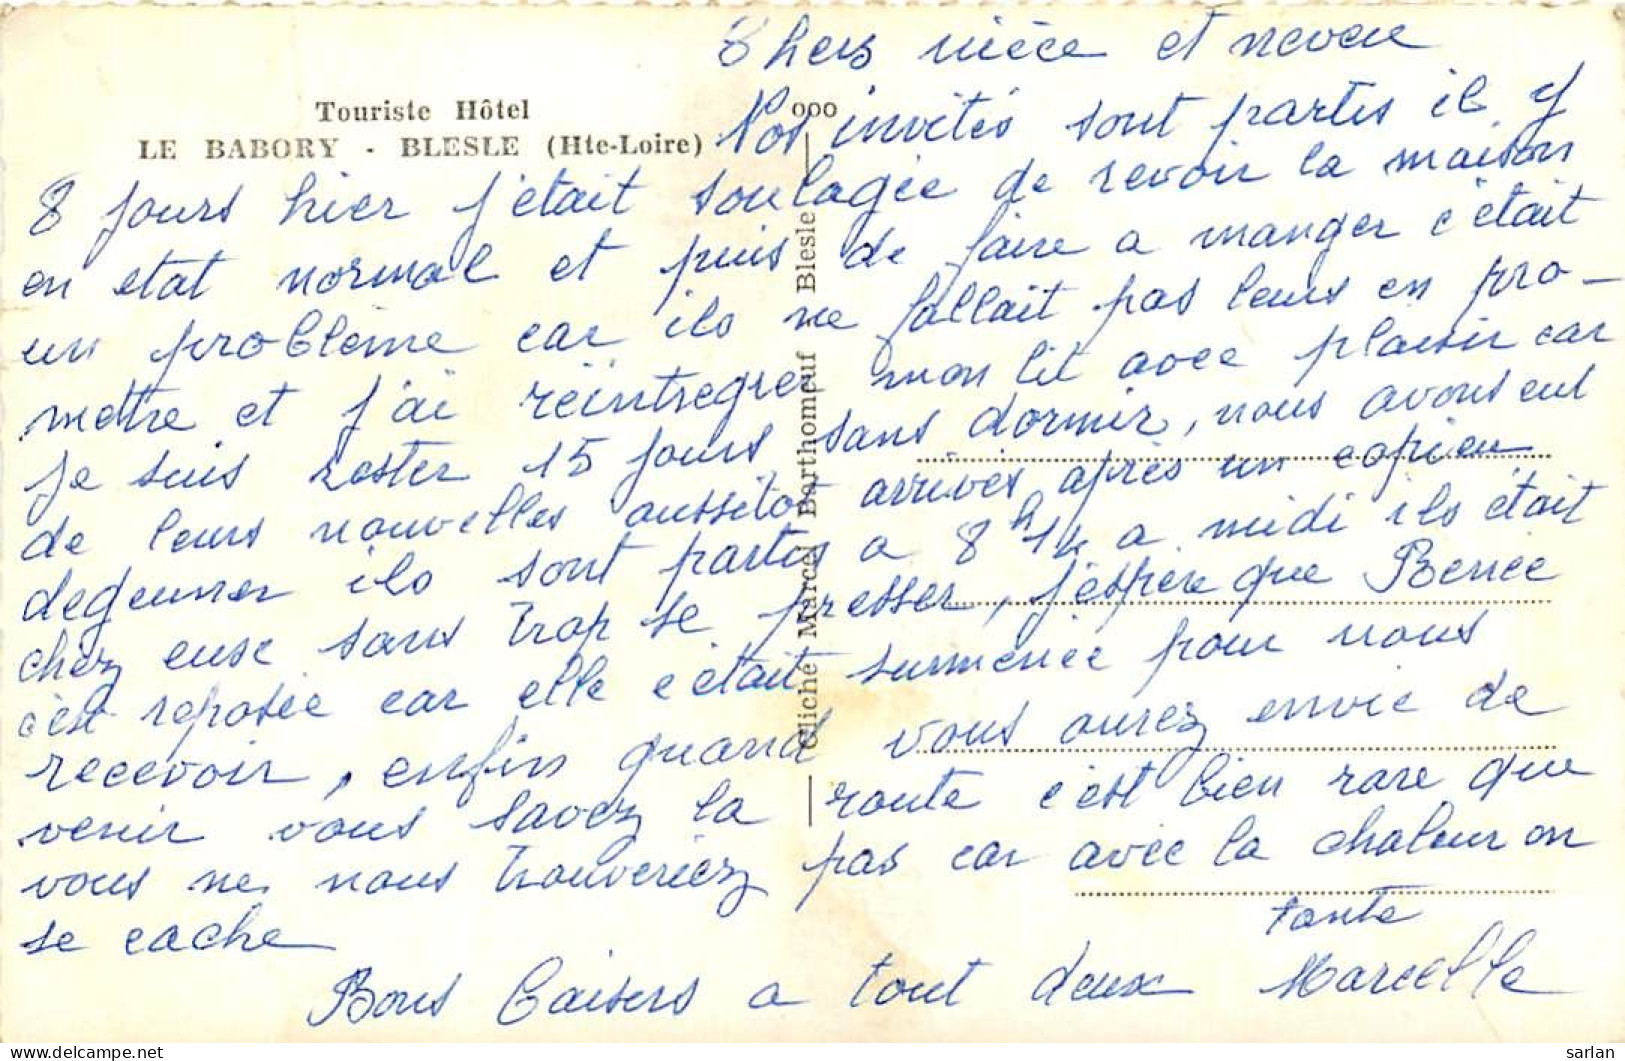 Chers nièce et neveu
Touriste Hôtel
LE BABORY - BLESLE (Hte-Loire)
Nos invités sont partis il y
8 jours hier j'était soulagée de revoir la maison
en état normal et puis de faire a manger c'était
un problème car ils ne fallait pas leurs en pro-
mettre et j'ai réintregrer mon lit avec plaisir car
je suis rester 15 jours sans dormir, nous avons eut
de leurs nouvelles aussitôt arrivés, après un copieu
degeuner ils sont partis a 8h 1/2 a midi ils était
chez euse sans trop se presser, j'espère que Renée
c'est reposée car elle c'était surmenée pour nous
recevoir, enfin quand vous aurez envie de
venir vous savez la route c'est bien rare que
vous ne nous trouveriez pas car avec la chaleur on
se cache
tante
Bons baisers a tout deux Marcelle
Cliché Marcel Barthomeuf Blesle
ooo
sarlan